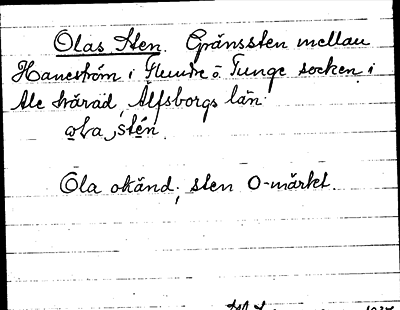 Olas Sten. Gränssten mellan
Haneström i Flundre o. Tunge socken i
Ale härad, Älfsborgs län.
ola, stén
Ola okänd; sten O-märkt.